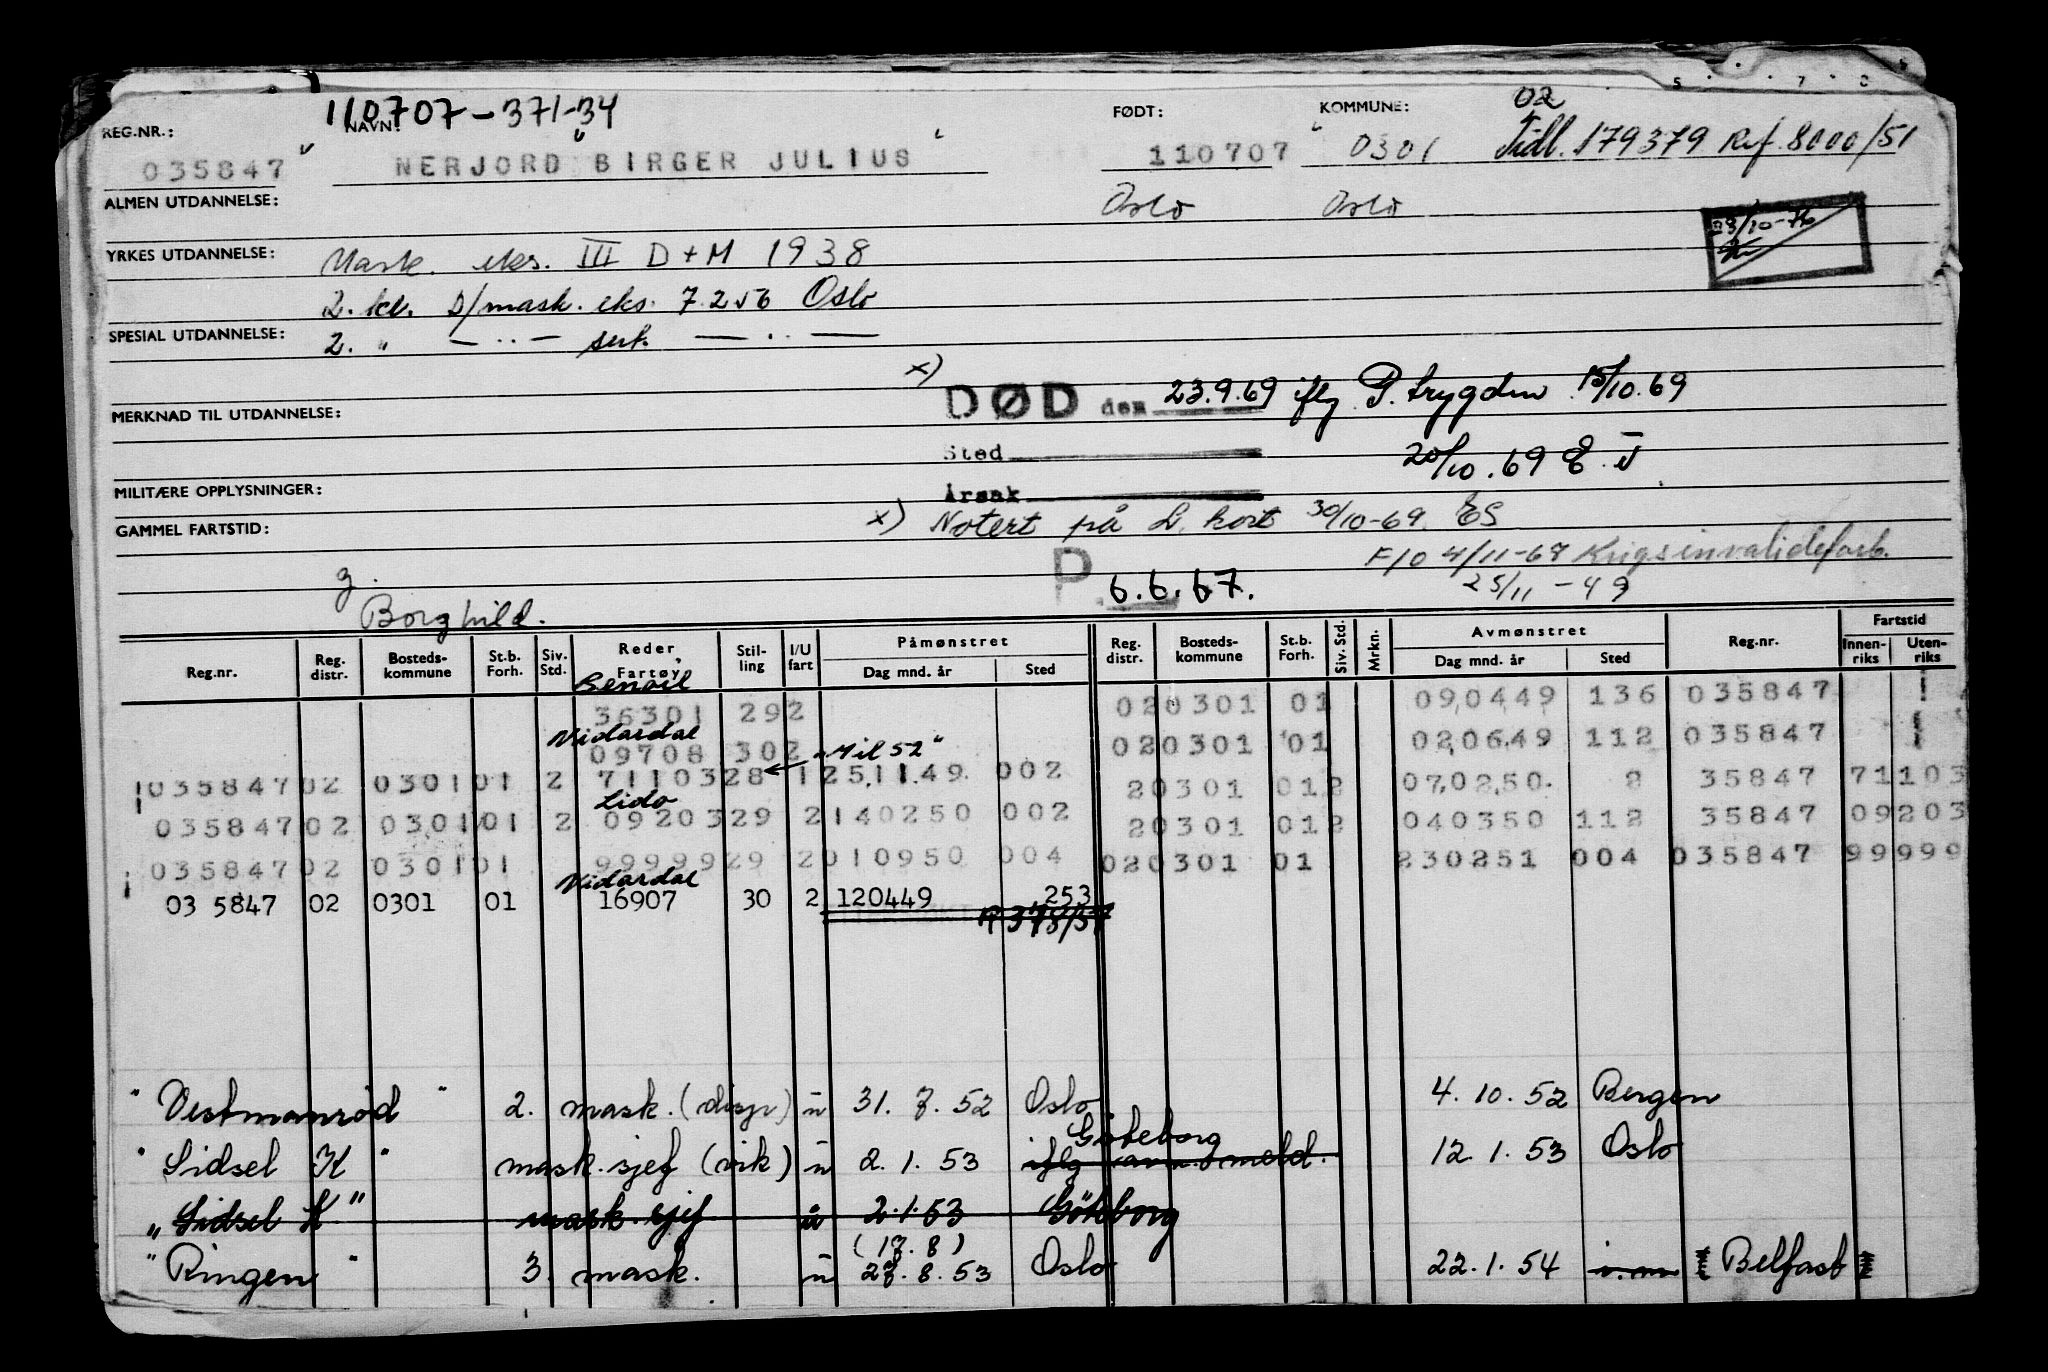 110707-371-34
REG.NR.: NAVN: FØDT: KOMMUNE: 02
035847 " NERJORD " BIRGER JULIUS " 110707 " 0301 Tidl. 179379 Ref. 8000/51
ALMEN UTDANNELSE: Oslo Oslo
28/10-76
YRKES UTDANNELSE: Mask. eks. III D + M 1938
2. kl. D/mask. eks. 7.2 56 Oslo
SPESIAL UTDANNELSE: 2. " — .. — sert. — .. —
x)
DØD den 23.9.69 iflg P. trygden 15/10.69
MERKNAD TIL UTDANNELSE:
Sted 20/10.69
Årsak
MILITÆRE OPPLYSNINGER:
x) Notert på L. kort 30/10-69 ES
GAMMEL FARTSTID:
F/O 4/11-68 Krigsinvalideforb.
P. 6.6.67. 25/11-49
g.
Borghild.
Reg.nr. Reg. distr. Bosteds- kommune St.b. Forh. Siv. Std. Reder Fartøy Stil- ling I/U fart Påmønstret Dag mnd. år Sted Reg. distr. Bosteds- kommune St.b. Forh. Siv. Std. Mrkn. Avmønstret Dag mnd. år Sted Reg.nr. Fartstid Innen- riks Uten- riks
Benoil
36301 29 2 020301 01 090449 136 035847
Vidardal
09708 30 2 "Mil 52" 020301 01 020649 112 035847
035847 02 0301 01 2 71103 28 1 251149 002 20301 01 2 070250 2 35847 71103
Lido
035847 02 0301 01 2 09203 29 2 140250 002 20301 01 2 040350 112 35847 09203
035847 02 0301 01 99999 29 2 010950 004 020301 01 230251 004 035847 99999
Vidardal
03 5847 02 0301 01 16907 30 2 120449 253
R 378/57
" Vestmanrød " 2. mask. (disp) u 31.7.52 Oslo 4.10.52 Bergen
Göteborg
" Sidsel K " mask. sjef (vik) u 2.1.53 iflg avm. meld. 12.1.53 Oslo
" Sidsel K " mask. sjef u 2.1.53 Göteborg
(17.8)
" Ringen " 3. mask. u 27.8.53 Oslo 22.1.54 Belfast